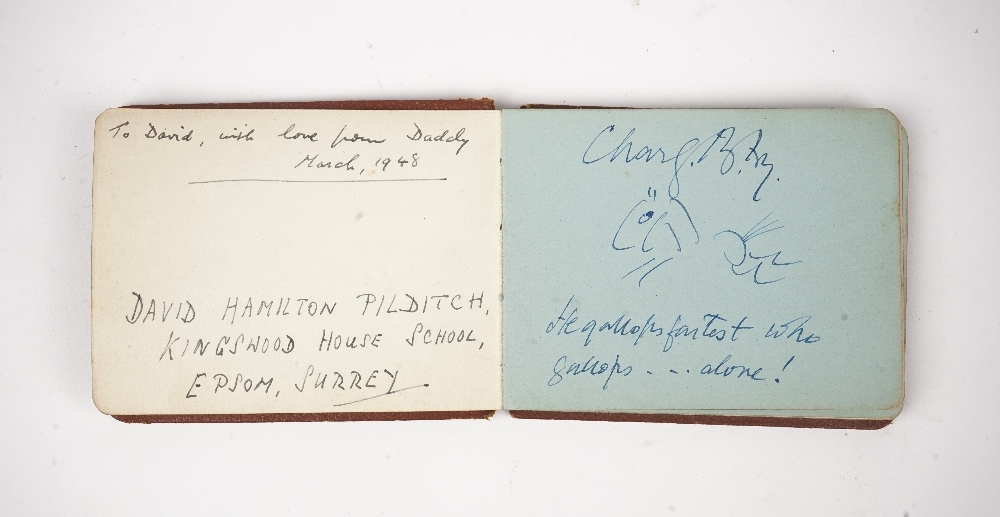 To David, with love from Daddy
March, 1948
DAVID HAMILTON PILDITCH,
KINGSWOOD HOUSE SCHOOL,
EPSOM, SURREY.
He gallops fastest who
gallops . . . alone!